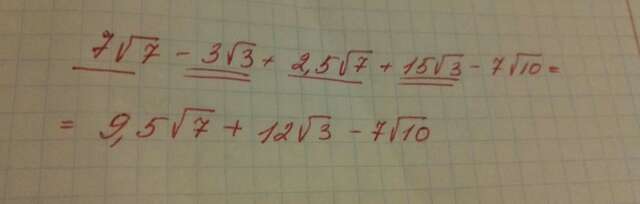 7√7 - 3√3 + 2,5√7 + 15√3 - 7√10 =
= 9,5√7 + 12√3 - 7√10